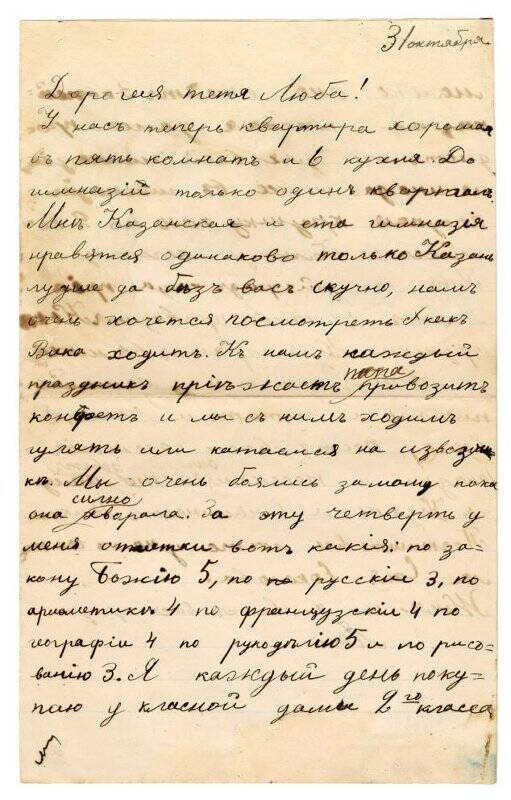 31 октября
Дорогая тетя Люба!
У насъ теперь квартира хорошая
въ пять комнатъ и 6 кухня До
гимназій только одинъ кварталъ.
Мнѣ Казанская и ета гимназія
нравятся одинаково только Казань
лучше да безъ васъ скучно, намъ
очень хочется посмотреть какъ
Вика ходитъ. Къ намъ каждый
праздникъ пріѣжаетъ папа привозитъ
конфетъ и мы съ нимъ ходимъ
гулять или катаемся на извозчи
кѣ. Мы очень боялись за маму пока
она сильно хворала. За эту четверть у
меня отметки вотъ какія: по за-
кону Божію 5, по русскій 3, по
ариѳметикѣ 4 по французскій 4 по
географіи 4 по рукодѣлію 5 и по рисо-
ванію 3. Я каждый день поку-
паю у класной дамы 2го класса